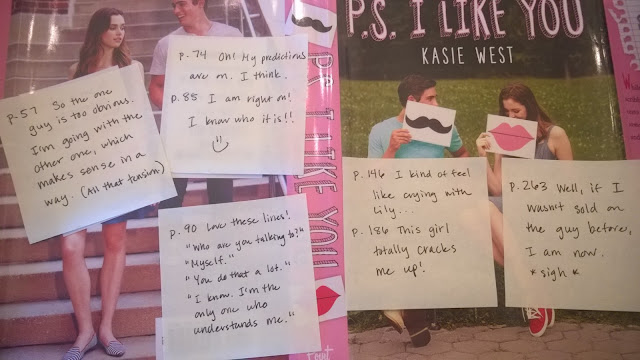 P.S. I LIKE YOU
KASIE WEST
PS I LIKE YOU
Point
p. 57 So the one
guy is too obvious.
I'm going with the
other one, which
makes sense in a
way. (All that tension)
p. 74 Oh! My predictions
are on. I think.
p. 85 I am right on!
I know who it is!!
p. 90 Love these lines!
"Who are you talking to?"
"Myself."
"You do that a lot."
"I know. I'm the
only one who
understands me."
p. 146 I kind of feel
like crying with
Lily...
p. 186 This girl
totally cracks
me up!
p. 263 Well, if I
wasn't sold on
the guy before,
I am now.
*sigh*